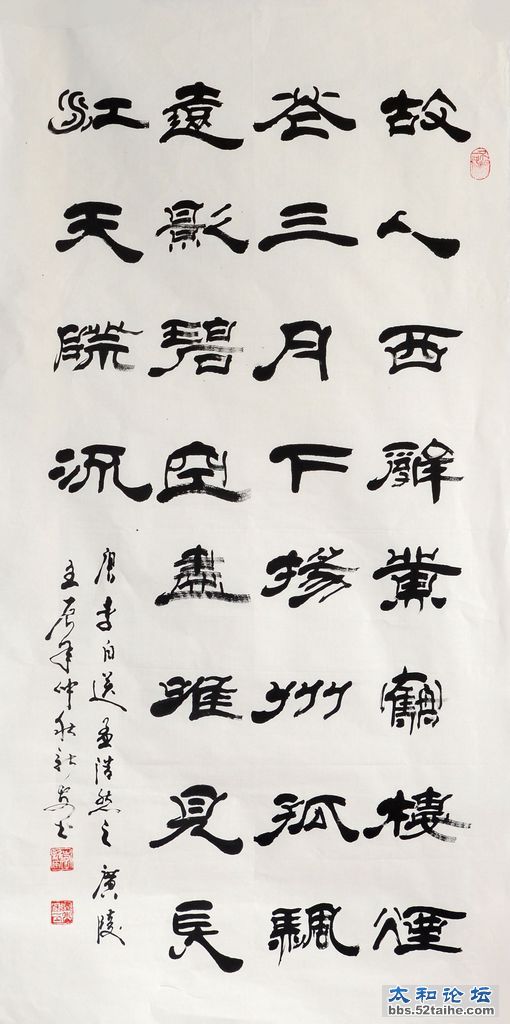 故人西辭黄鶴樓煙
花三月下揚州孤颿
遠影碧空盡唯見長
江天際流
唐李白送孟浩然之廣陵
壬辰年仲秋新安书
太和论坛
bbs.52taihe.com